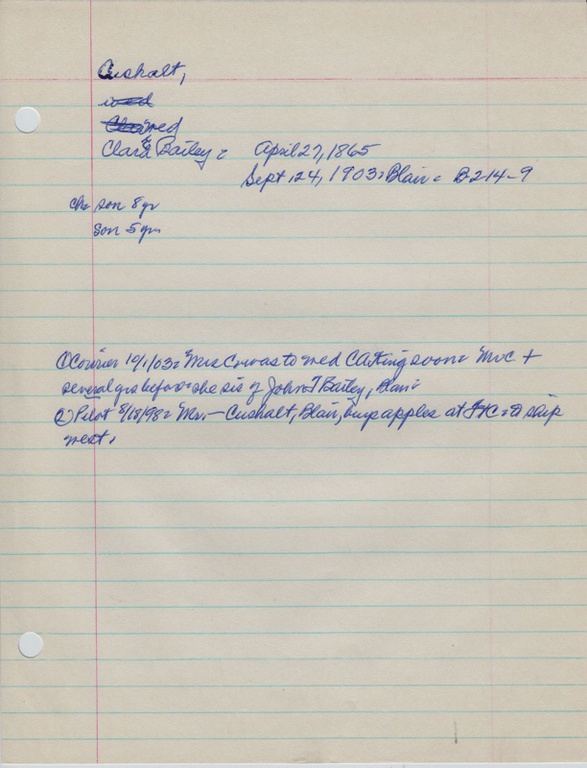 Cushalt,
med
Clara Bailey = April 27, 1865
Sept. 24, 1903, Blair = B214-9
Ch= son 8 yr
Son 5 yrs
① Courier 10/1/03 = Mrs C was to med CA King soon = Mr C +
several yrs before = she sis of John T Bailey, Blair =
② Pilot 8/18/98 = Mr. — Cushalt, Blair, buys apples at = to ship
west.